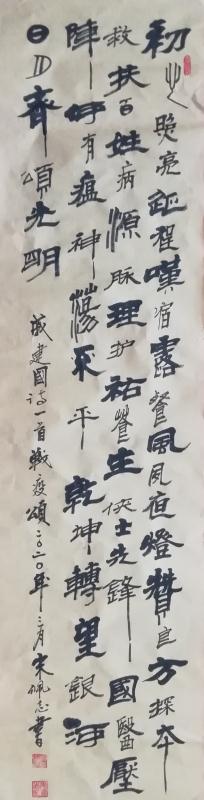 初心晓亮征程嘆宿露餐風夙夜燈贊良方探本
救扶百姓病源脉理护祐生侠士先鋒國醫壓
陣有瘟神蕩不平乾坤轉望銀河
日月齊頌光明
成建國诗一首戰疫頌二〇二〇年三月宋佩志書